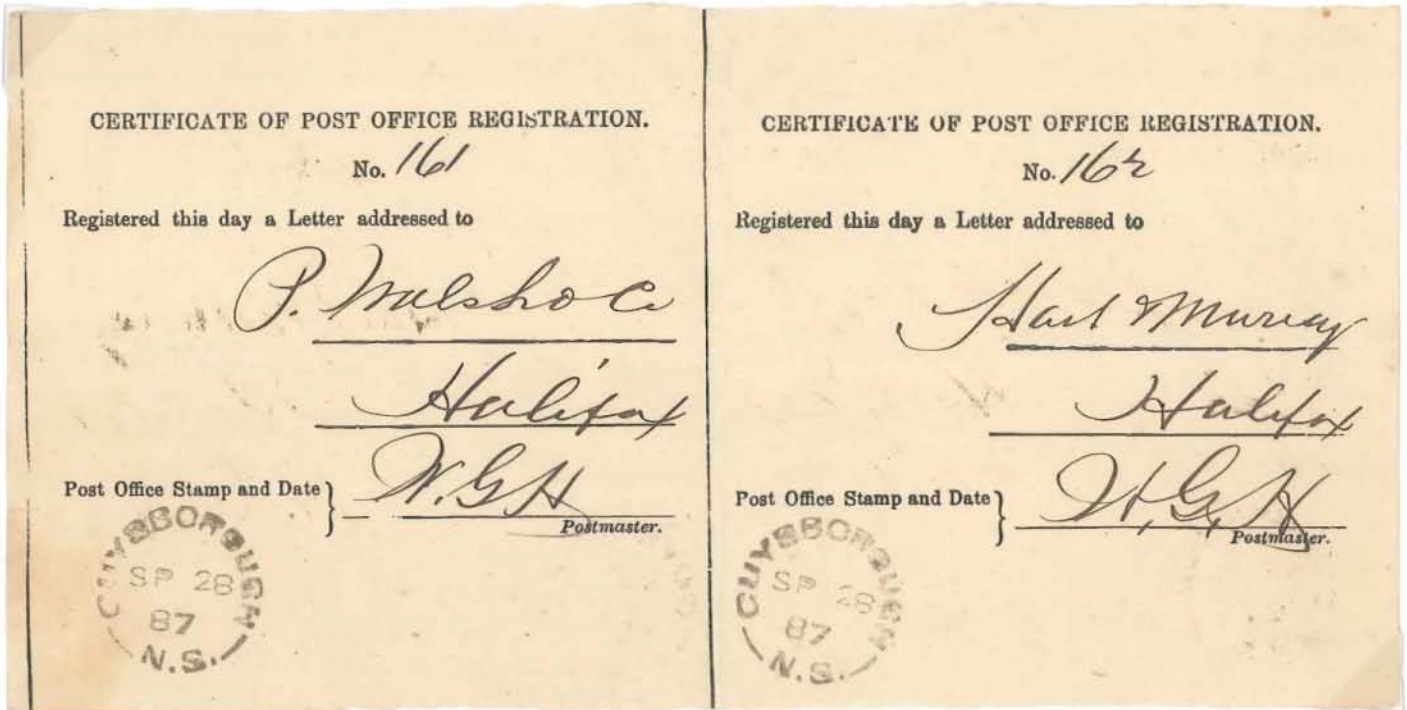 CERTIFICATE OF POST OFFICE REGISTRATION.
No. 161
Registered this day a Letter addressed to
P. Walsh & Co
Halifax
Post Office Stamp and Date }
W.G.H
Postmaster.
GUYSBOROUGH
SP 28
87
N.S.
CERTIFICATE OF POST OFFICE REGISTRATION.
No. 162
Registered this day a Letter addressed to
Hart & Murray
Halifax
Post Office Stamp and Date }
W.G.H
Postmaster.
GUYSBOROUGH
SP 28
87
N.S.